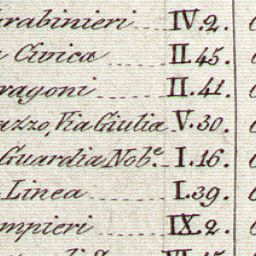 rabinieri IV.2.
Civica II.45.
ragoni II.41.
azzo, Via Giulia V.30.
Guardia Nob.e I.16.
Linea I.39.
ompieri IX.2.